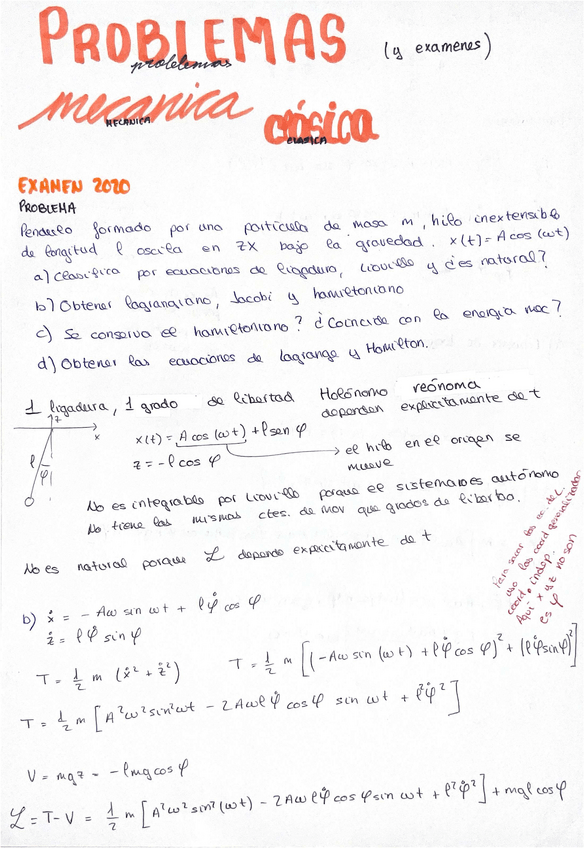 PROBLEMAS (y examenes)
problemas
mecanica
MECANICA
clásica
CLASICA
EXAMEN 2020
PROBLEMA
Pendulo formado por una partícula de masa m, hilo inextensible
de longitud l oscila en ZX bajo la gravedad. x(t) = A cos (ωt)
a) Clasifica por ecuaciones de ligadura, Liouville y ¿es natural?
b) Obtener lagrangiano, Jacobi y hamiltoniano
c) Se conserva el hamiltoniano? ¿Coincide con la energía mec?
d) Obtener las ecuaciones de Lagrange y Hamilton.
1 ligadura, 1 grado de libertad Holónomo reónoma
dependen explícitamente de t
z
x
l
φ
x(t) = A cos (ωt) + l sen φ
z = -l cos φ
→ el hilo en el origen se
mueve
No es integrable por Liouville porque el sistema no es autónomo
No tiene las mismas ctes. de mov que grados de liberba.
No es natural porque ℒ depende explicitamente de t
Para sacar las ec. de L.
uso las coord generalizadas
coord indep.
Aquí x y z no son
es φ
b) ẋ = - Aω sin ωt + l φ̇ cos φ
ż = l φ̇ sin φ
T = 1/2 m (ẋ² + ż²) T = 1/2 m [(-Aω sin (ωt) + l φ̇ cos φ)² + (l φ̇ sin φ)²]
T = 1/2 m [A² ω² sin² ωt - 2 Aω l φ̇ cos φ sin ωt + l² φ̇²]
V = mgz = - l mg cos φ
ℒ = T - V = 1/2 m [A² ω² sin² (ωt) - 2 Aω l φ̇ cos φ sin ωt + l² φ̇²] + mgl cos φ